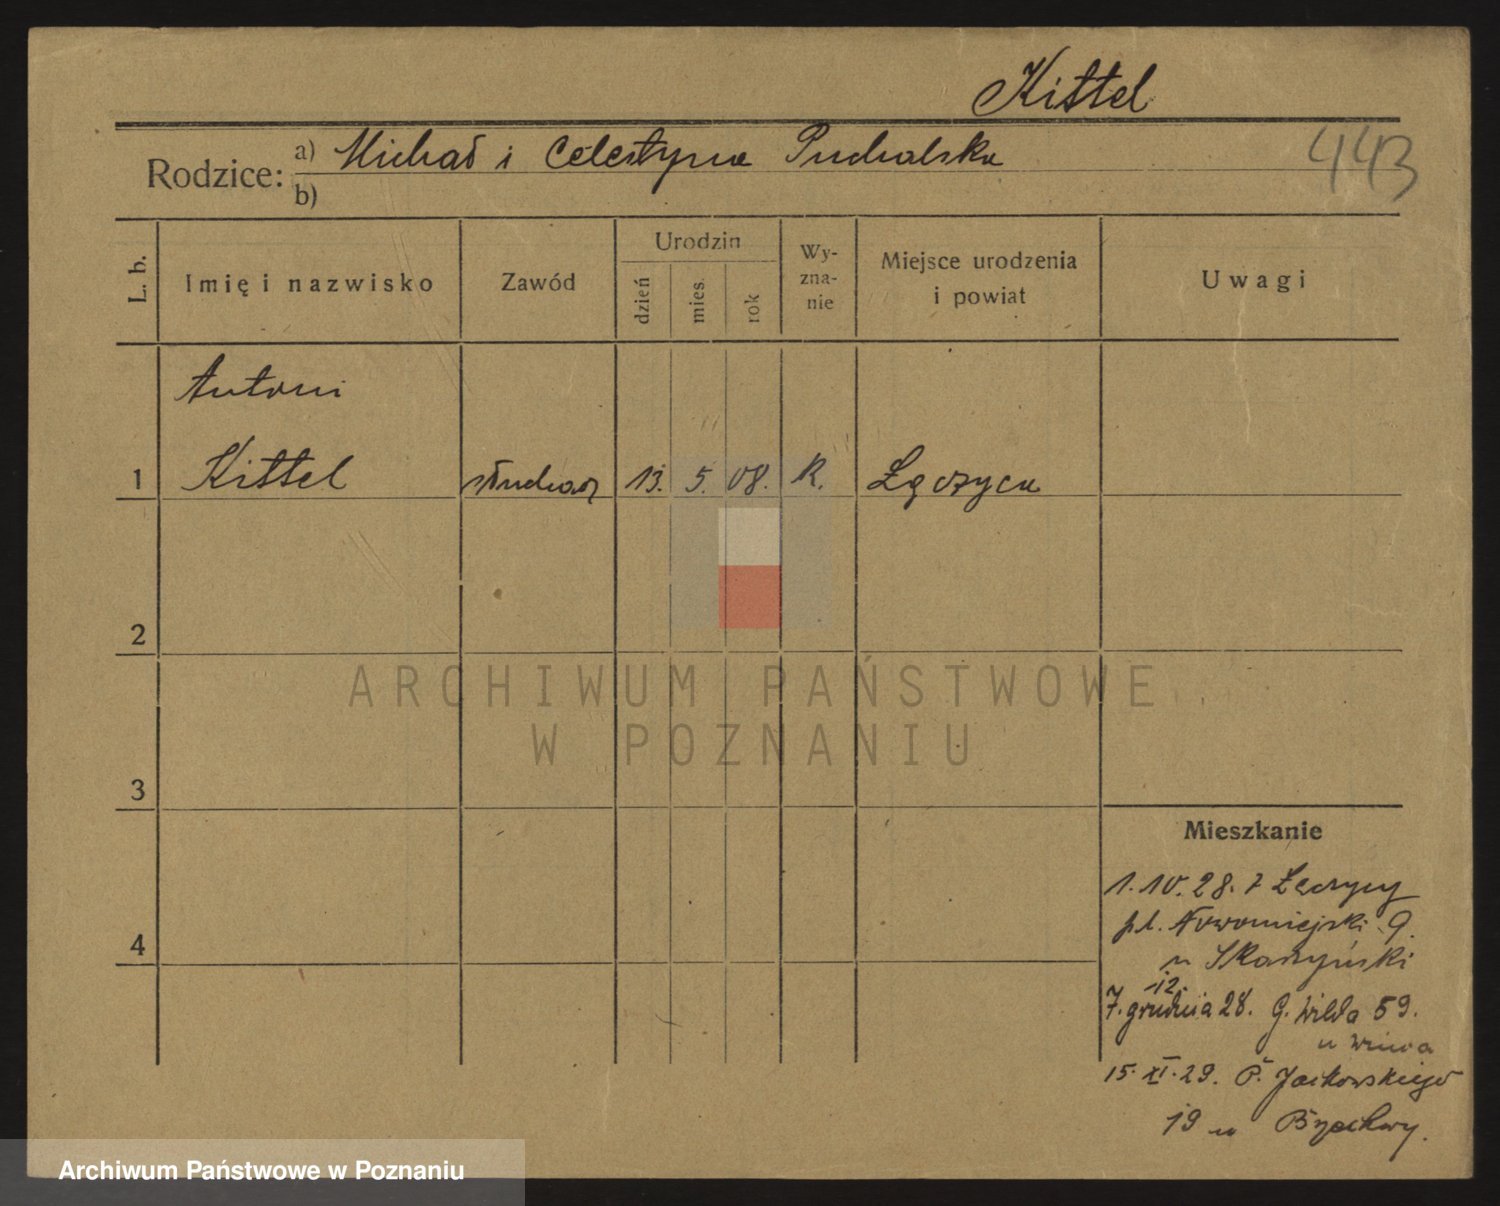 Kittel
443
Rodzice: a) Michał i Celestyna Puchalska
b)
L. b.
Imię i nazwisko
Zawód
Urodzin
dzień
mies.
rok
Wy-
zna-
nie
Miejsce urodzenia
i powiat
Uwagi
Antoni
1 Kittel słuchacz 13. 5. 08. R. Łęczyca
2
3
4
ARCHIWUM PAŃSTWOWE
W POZNANIU
Mieszkanie
1.10.28. z Łęczycy
pl. Nowomiejski 9.
u Skarżyński
12.
7. grudnia 28. G. Wilda 59.
u
15.XI.29. P. Jackowskiego
19 u Brzechwy.
Archiwum Państwowe w Poznaniu